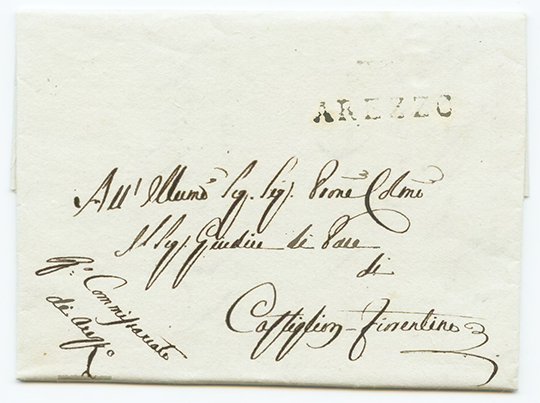 AREZZO
All' Illumo Sig. Sig. Prone Colmo
Il Sig. Giudice di Pace
di
Castiglion-Fiorentino
Commissariato
di Arezzo